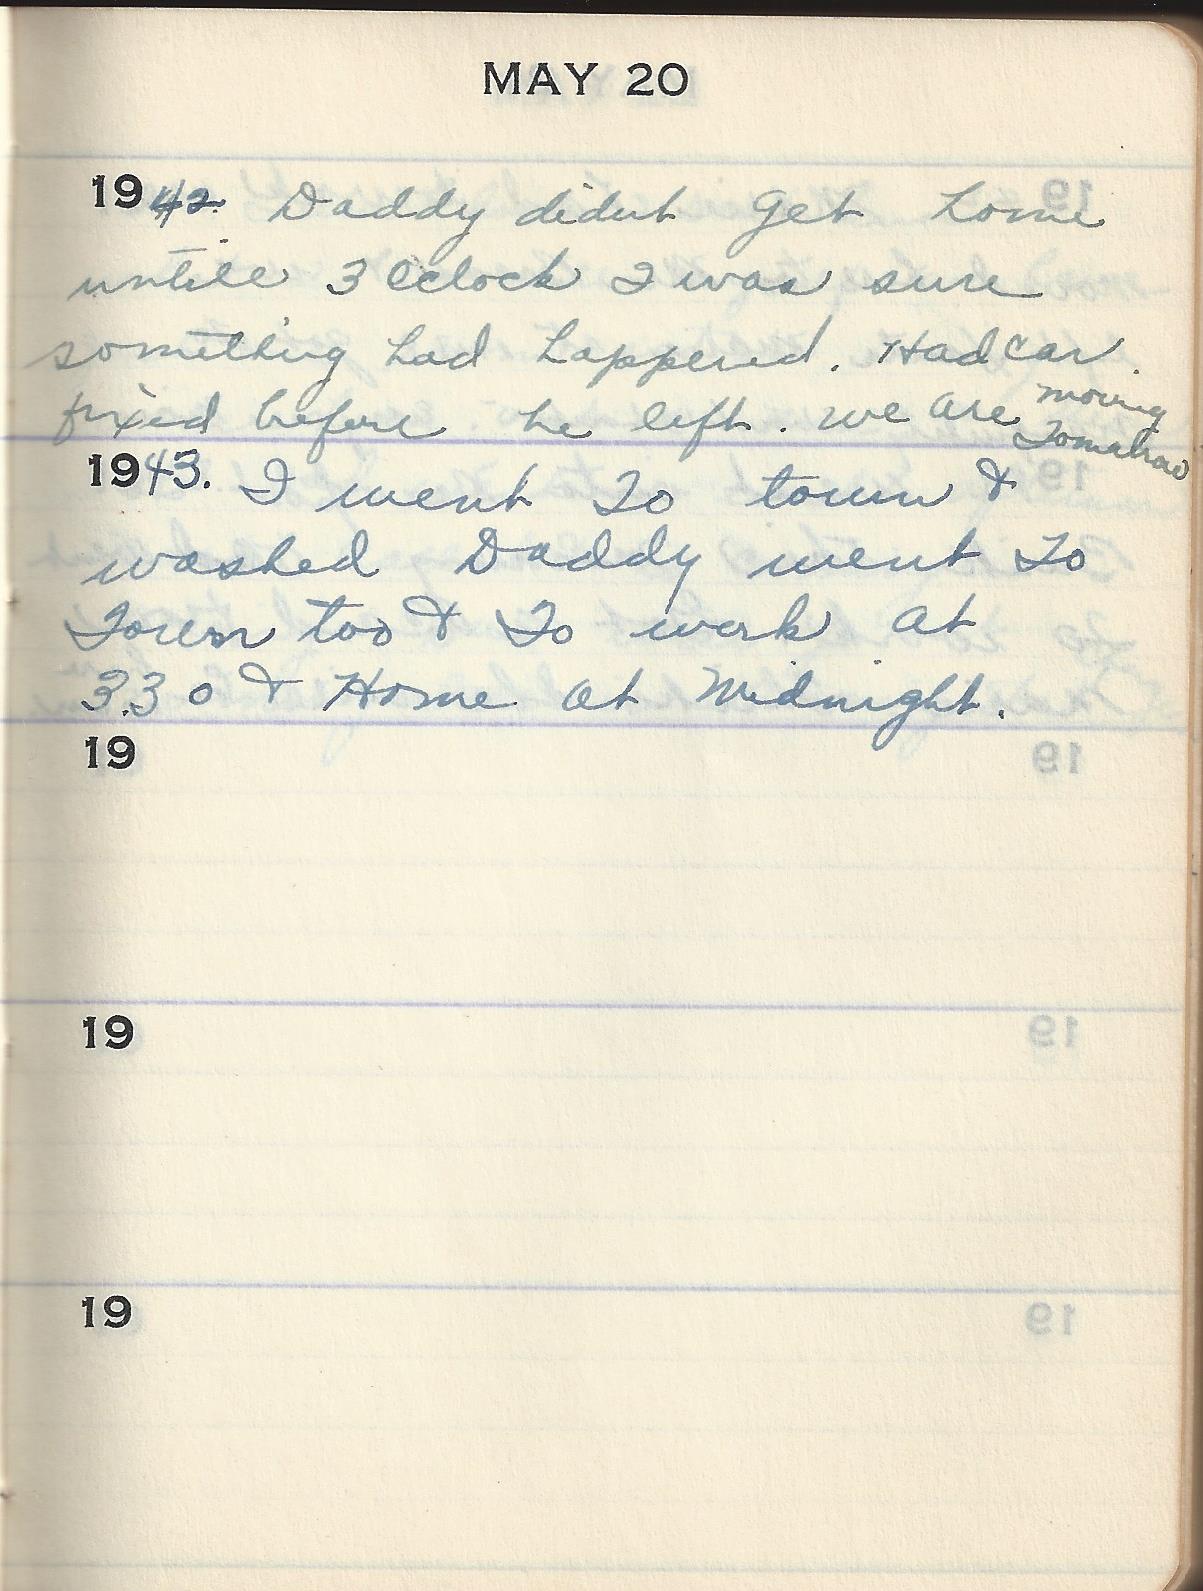 MAY 20
1942. Daddy didnt get home
untill 3 Oclock I was sure
something had happened. Had car
fixed before he left. we are moving
Tomorrow
1943. I went To town &
washed Daddy went To
Town too & To work at
3.30 & Home at Midnight.
19
19
19